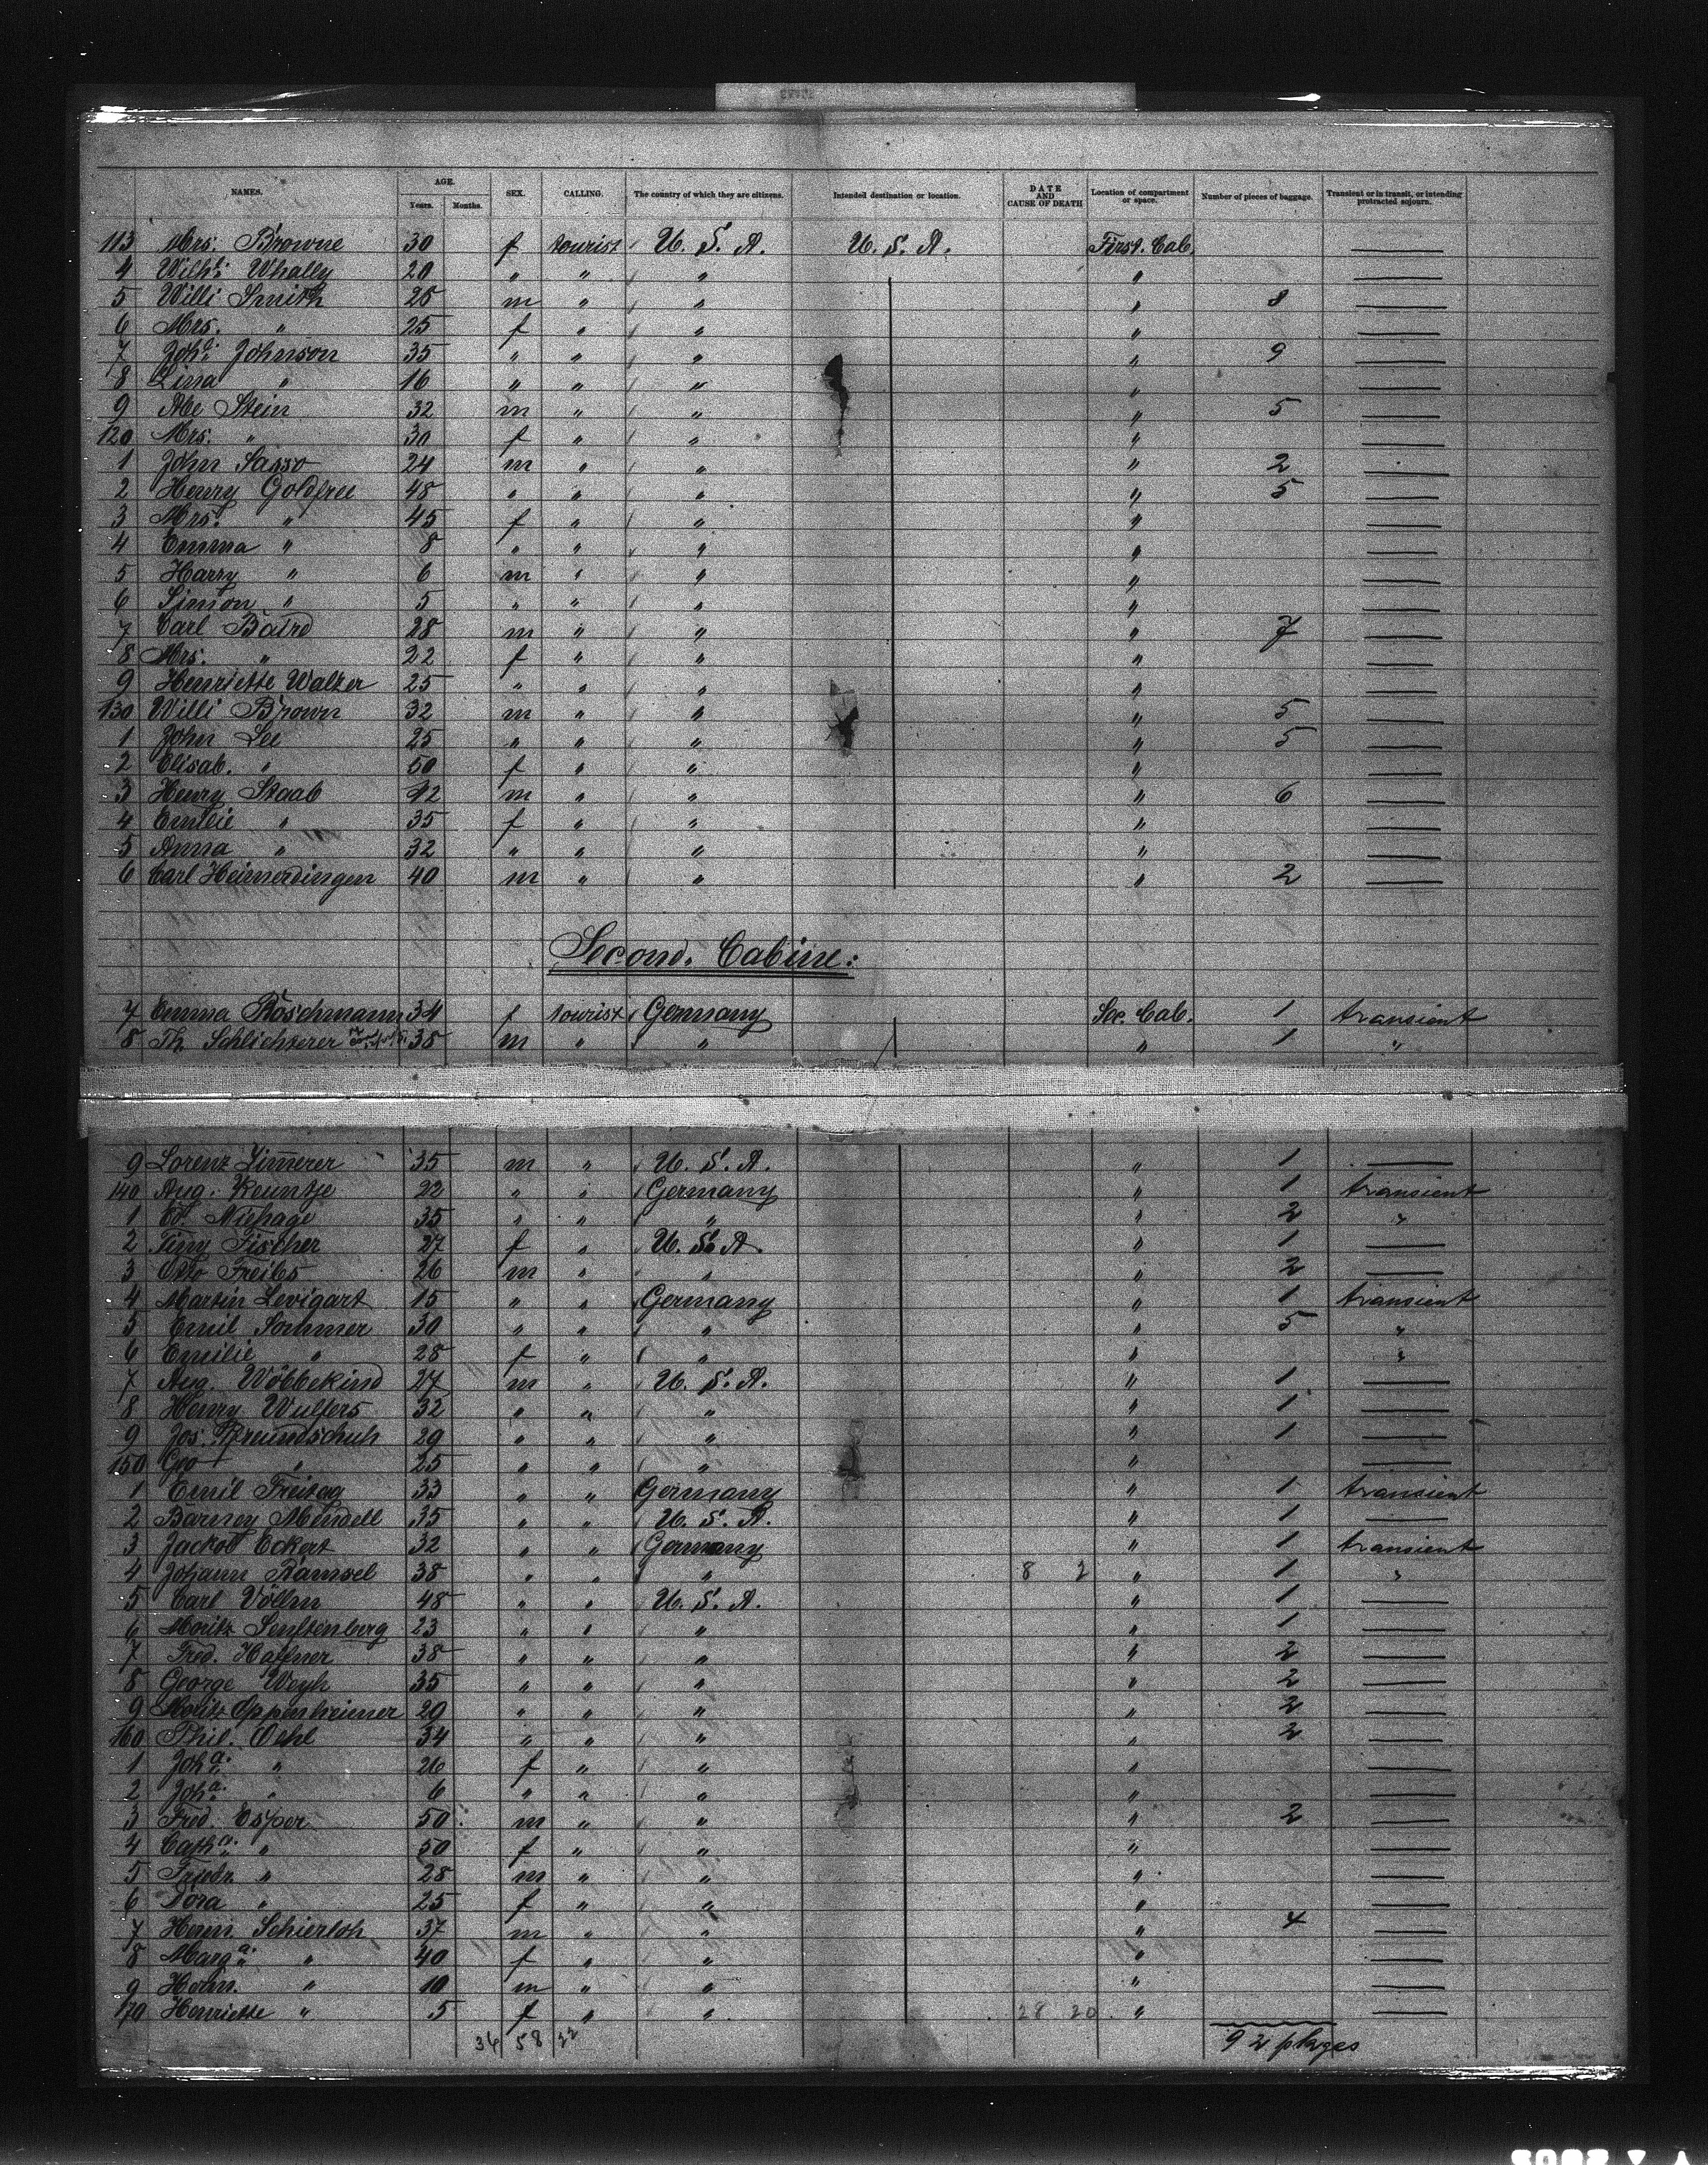 NAMES. AGE. Years. Months. SEX. CALLING. The country of which they are citizens. Intended destination or location. DATE AND CAUSE OF DEATH Location of compartment or space. Number of pieces of baggage. Transient or in transit, or intending protracted sojourn.
113 Mrs. Browne 30 f tourist U. S. A. U. S. A. First. Cab.
4 Wilh. Whally 20 " " " "
5 Willi Smith 25 m " " " 8
6 Mrs. " 25 f " " "
7 Joh. Johnson 35 " " " " 9
8 Lina " 16 " " " "
9 Abe Stein 32 m " " " 5
120 Mrs. " 30 f " " "
1 John Sasso 24 m " " " 2
2 Henry Goldfree 48 " " " " 5
3 Mrs. " 45 f " " "
4 Emma " 8 " " " "
5 Harry " 6 m " " "
6 Simon " 5 " " " "
7 Carl Baird 28 m " " " 7
8 Mrs. " 22 f " " "
9 Henriette Walter 25 " " " "
130 Willi Brown 32 m " " " 5
1 John Lee 25 " " " " 5
2 Elisab. " 50 f " " "
3 Henry Staab 42 m " " " 6
4 Emilie " 35 f " " "
5 Anna " 32 " " " "
6 Carl Heimerdingen 40 m " " " 2
Second. Cabine:
7 Emma Röschmann 34 f tourist Germany Sec. Cab. 1 transient
8 Th. Schlichterer 38 m " " " 1 "
9 Lorenz Zimerer 35 m " U. S. A. " 1
140 Aug. Keuntje 22 " " Germany " 1 transient
1 Ed. Niehage 35 " " " " 2 "
2 Tiny Fischer 27 f " U. S. A. " 1
3 Otto Freibs 26 m " " " 2
4 Martin Levigart 15 " " Germany " 1 transient
5 Emil Sommer 30 " " " " 5 "
6 Emilie " 28 f " " " "
7 Aug. Wöbbekind 27 m " U. S. A. " 1
8 Henry Wulfers 32 " " " " 1
9 Jos. Freundschuh 29 " " " " 1
150 Geo " 25 " " " "
1 Emil Freitag 33 " " Germany " 1 transient
2 Barney Mendell 35 " " U. S. A. " 1
3 Jackob Eckert 32 " " Germany " 1 transient
4 Johann Ramsel 38 " " " 8 2 " 1 "
5 Carl Völlm 48 " " U. S. A. " 1
6 Moritz Senftenberg 23 " " " " 1
7 Fred. Haffner 38 " " " " 2
8 George Weyh 35 " " " " 2
9 Moritz Oppenheimer 29 " " " " 2
160 Phil. Oehl 34 " " " " 2
1 Joh.a " 26 f " " "
2 Joh.a " 6 " " " "
3 Fred. Esper 50 m " " " 2
4 Cath.a " 50 f " " "
5 Friedr. " 28 m " " "
6 Dora " 25 f " " "
7 Herm. Schierloh 37 m " " " 4
8 Marg.a " 40 f " " "
9 Herm. " 10 m " " "
170 Henriette " 5 f " " 28 20 "
36 58 22 92 pkges